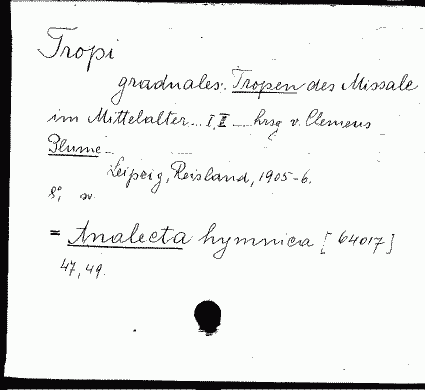 Tropi
graduales. Tropen des Missale
im Mittelalter... I, II — hrsg v. Clemens
Blume —
Leipzig, Reisland, 1905-6.
8°,
= Analecta hymnica [64017]
47, 49.